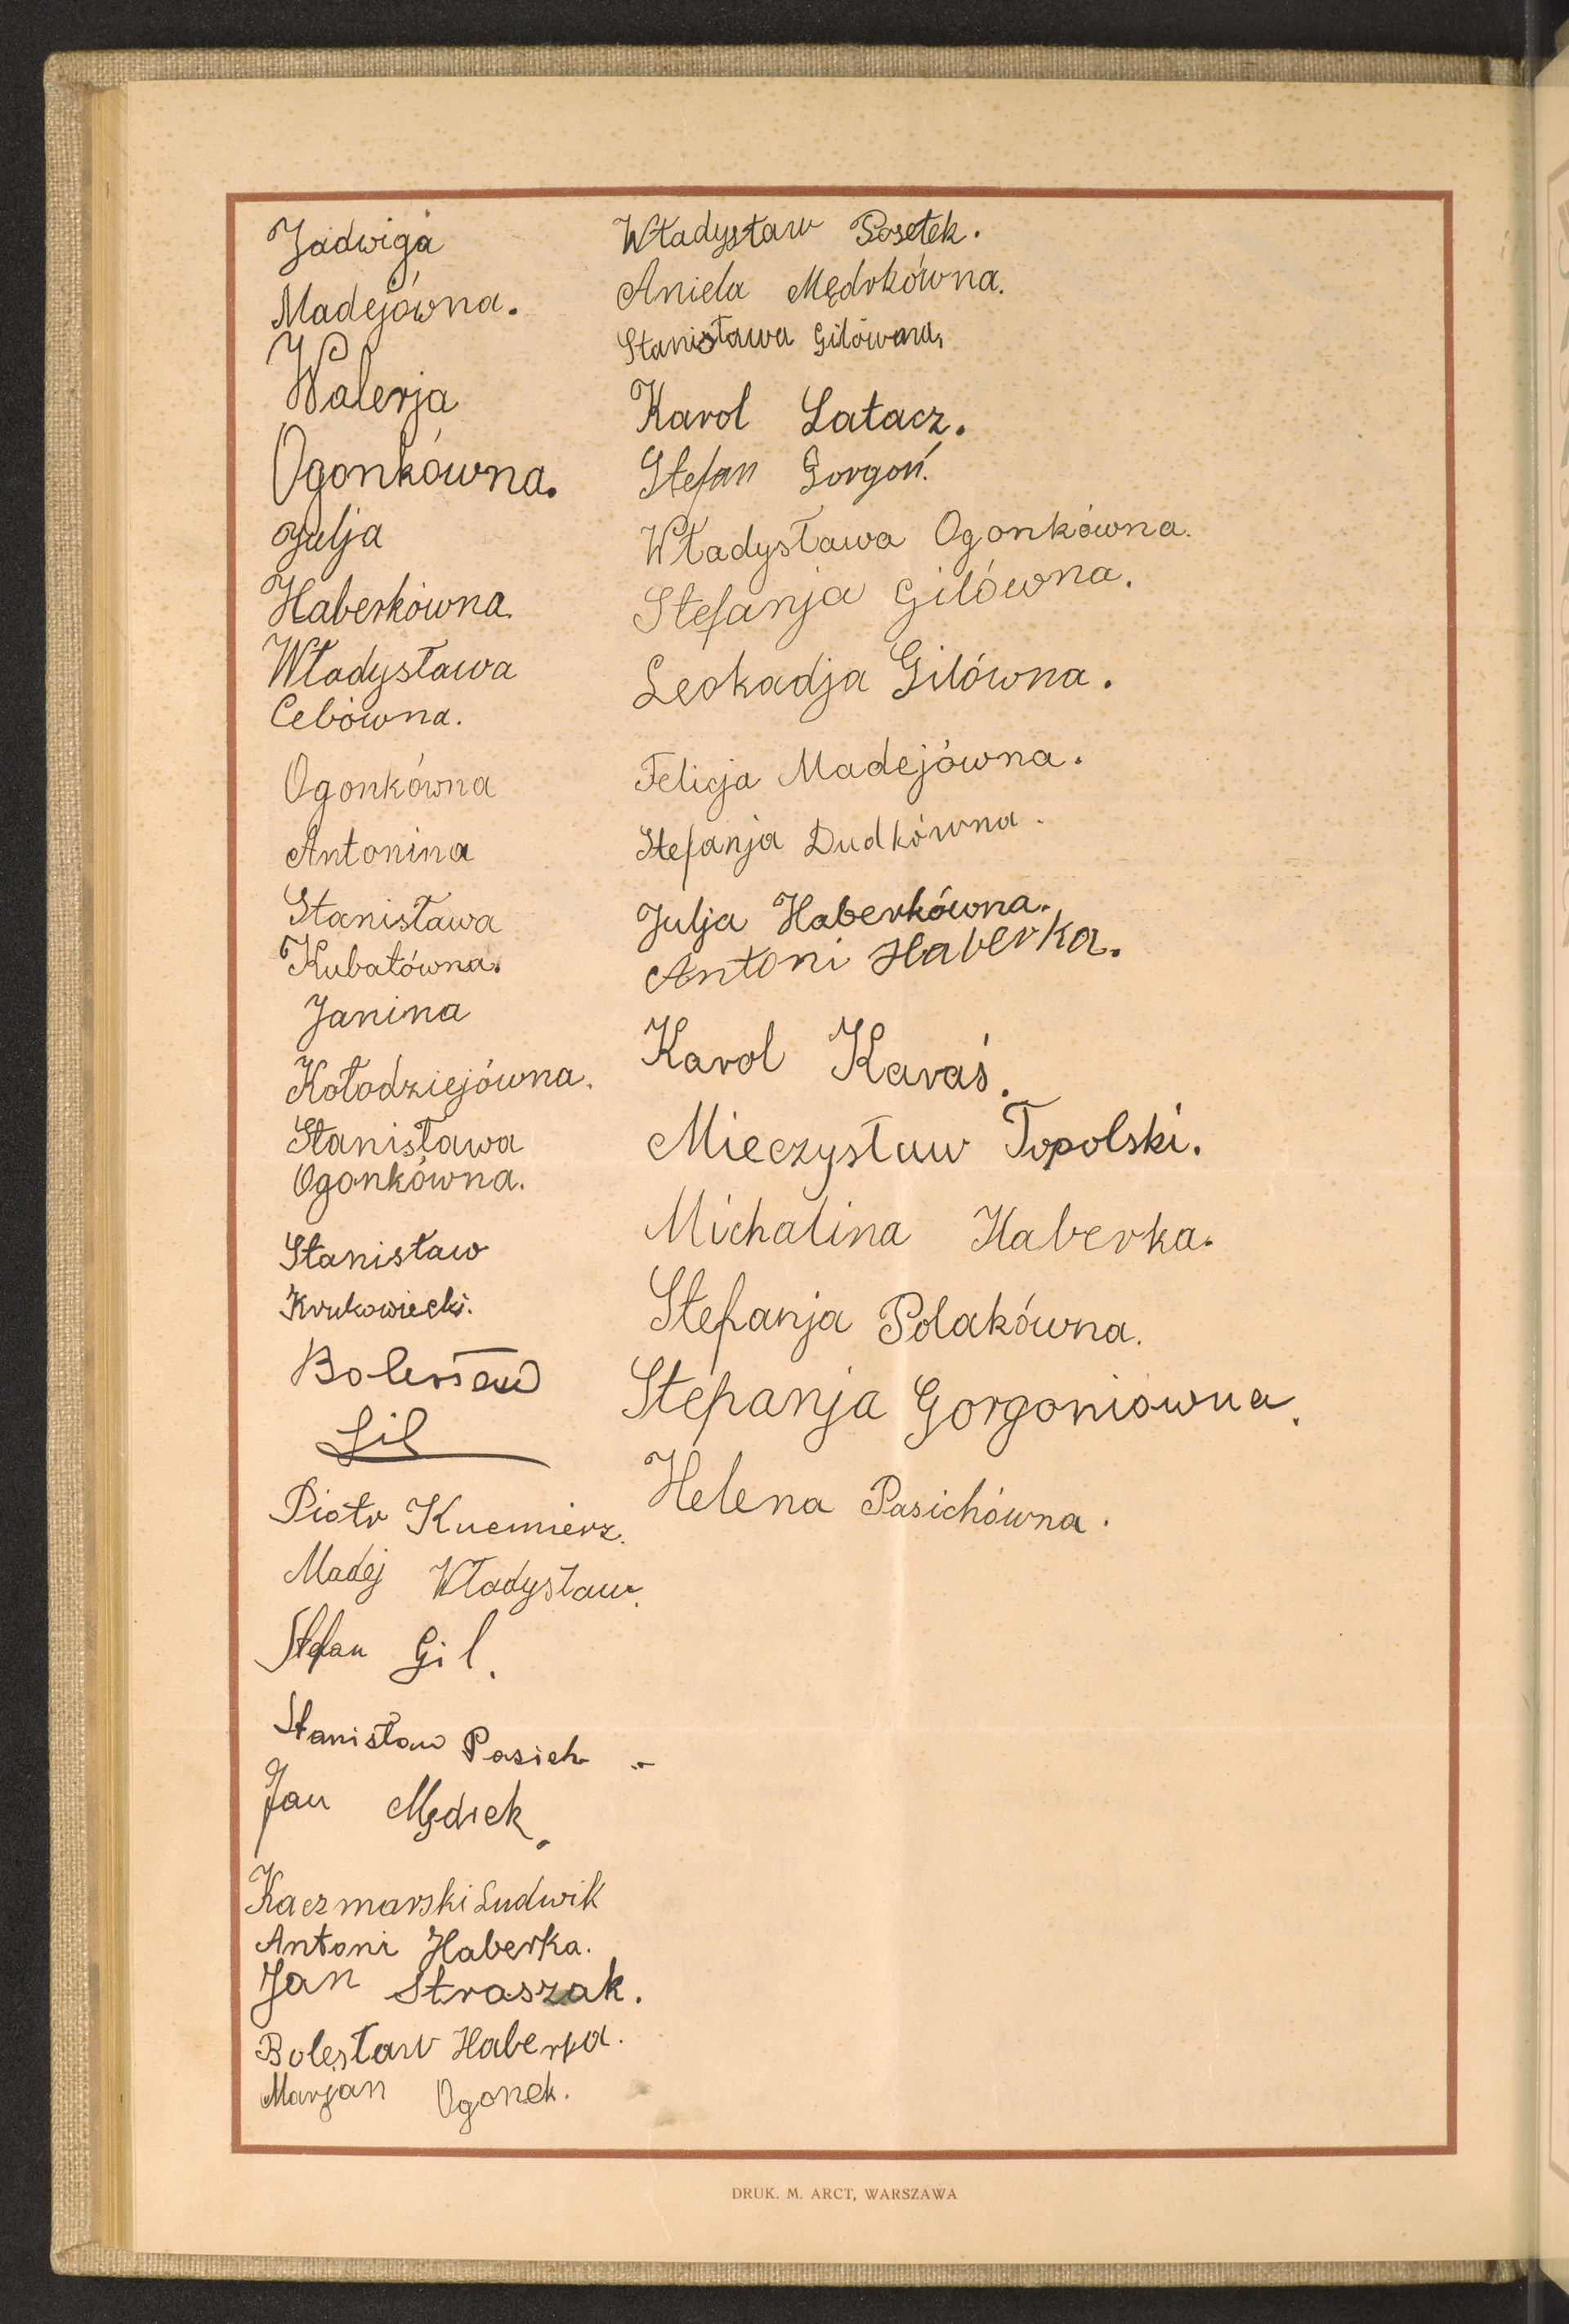 Jadwiga
Madejówna.
Walerja
Ogonkówna.
Julja
Haberkówna.
Władysława
Cebówna.
Ogonkówna
Antonina
Stanisława
Kubatówna.
Janina
Kołodziejówna.
Stanisława
Ogonkówna.
Stanisław
Krukowiecki.
Bolesław
Gil
Piotr Kuemierz.
Madej Władysław.
Stefan Gil.
Stanisław Pasich
Jan Mędrek.
Kaczmarski Ludwik
Antoni Haberka.
Jan Straszak.
Bolesław Haberka.
Marjan Ogonek.
Władysław Posełek.
Aniela Mędrkówna.
Stanisława Gilówna.
Karol Łatacz.
Stefan Gorgoń.
Władysława Ogonkówna.
Stefanja Gilówna.
Leokadja Gilówna.
Felicja Madejówna.
Stefanja Dudkówna.
Julja Haberkówna.
Antoni Haberka.
Karol Karaś.
Mieczysław Topolski.
Michalina Haberka.
Stefanja Polakówna.
Stefanja Gorgoniówna.
Helena Pasichówna.
DRUK. M. ARCT, WARSZAWA